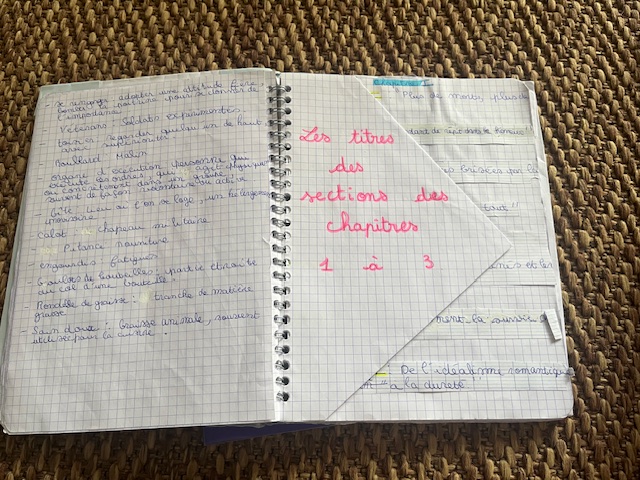 - Se rengorger adopter une attitude fière
pour se donner de
l'importance
Vétérans : Soldats expérimentés.
toiser : regarder quelqu'un de haut,
avec supériorité
Roublard Malin
organe d'exécution personne qui
exécute les ordres, qui agit physiquement
ou concrètement dans un groupe,
souvent de façon volontaire ou active
- Gîte lieu où l'on se loge, un hébergement
Calot chapeau militaire
Pitance nourriture
engourdis fatigués
Goulots de bouteilles : partie étroite
du col d'une bouteille
- Rondelle de graisse : tranche de matière
grasse
- Sain doux : Graisse animale, souvent
utilisé pour la cuisine.
Les titres
des
sections des
chapitres
1 à 3
Plus de morts, plus de
brisées par la
tout"
et les
ment la survie
De l'idéalisme romantique
à la dureté !